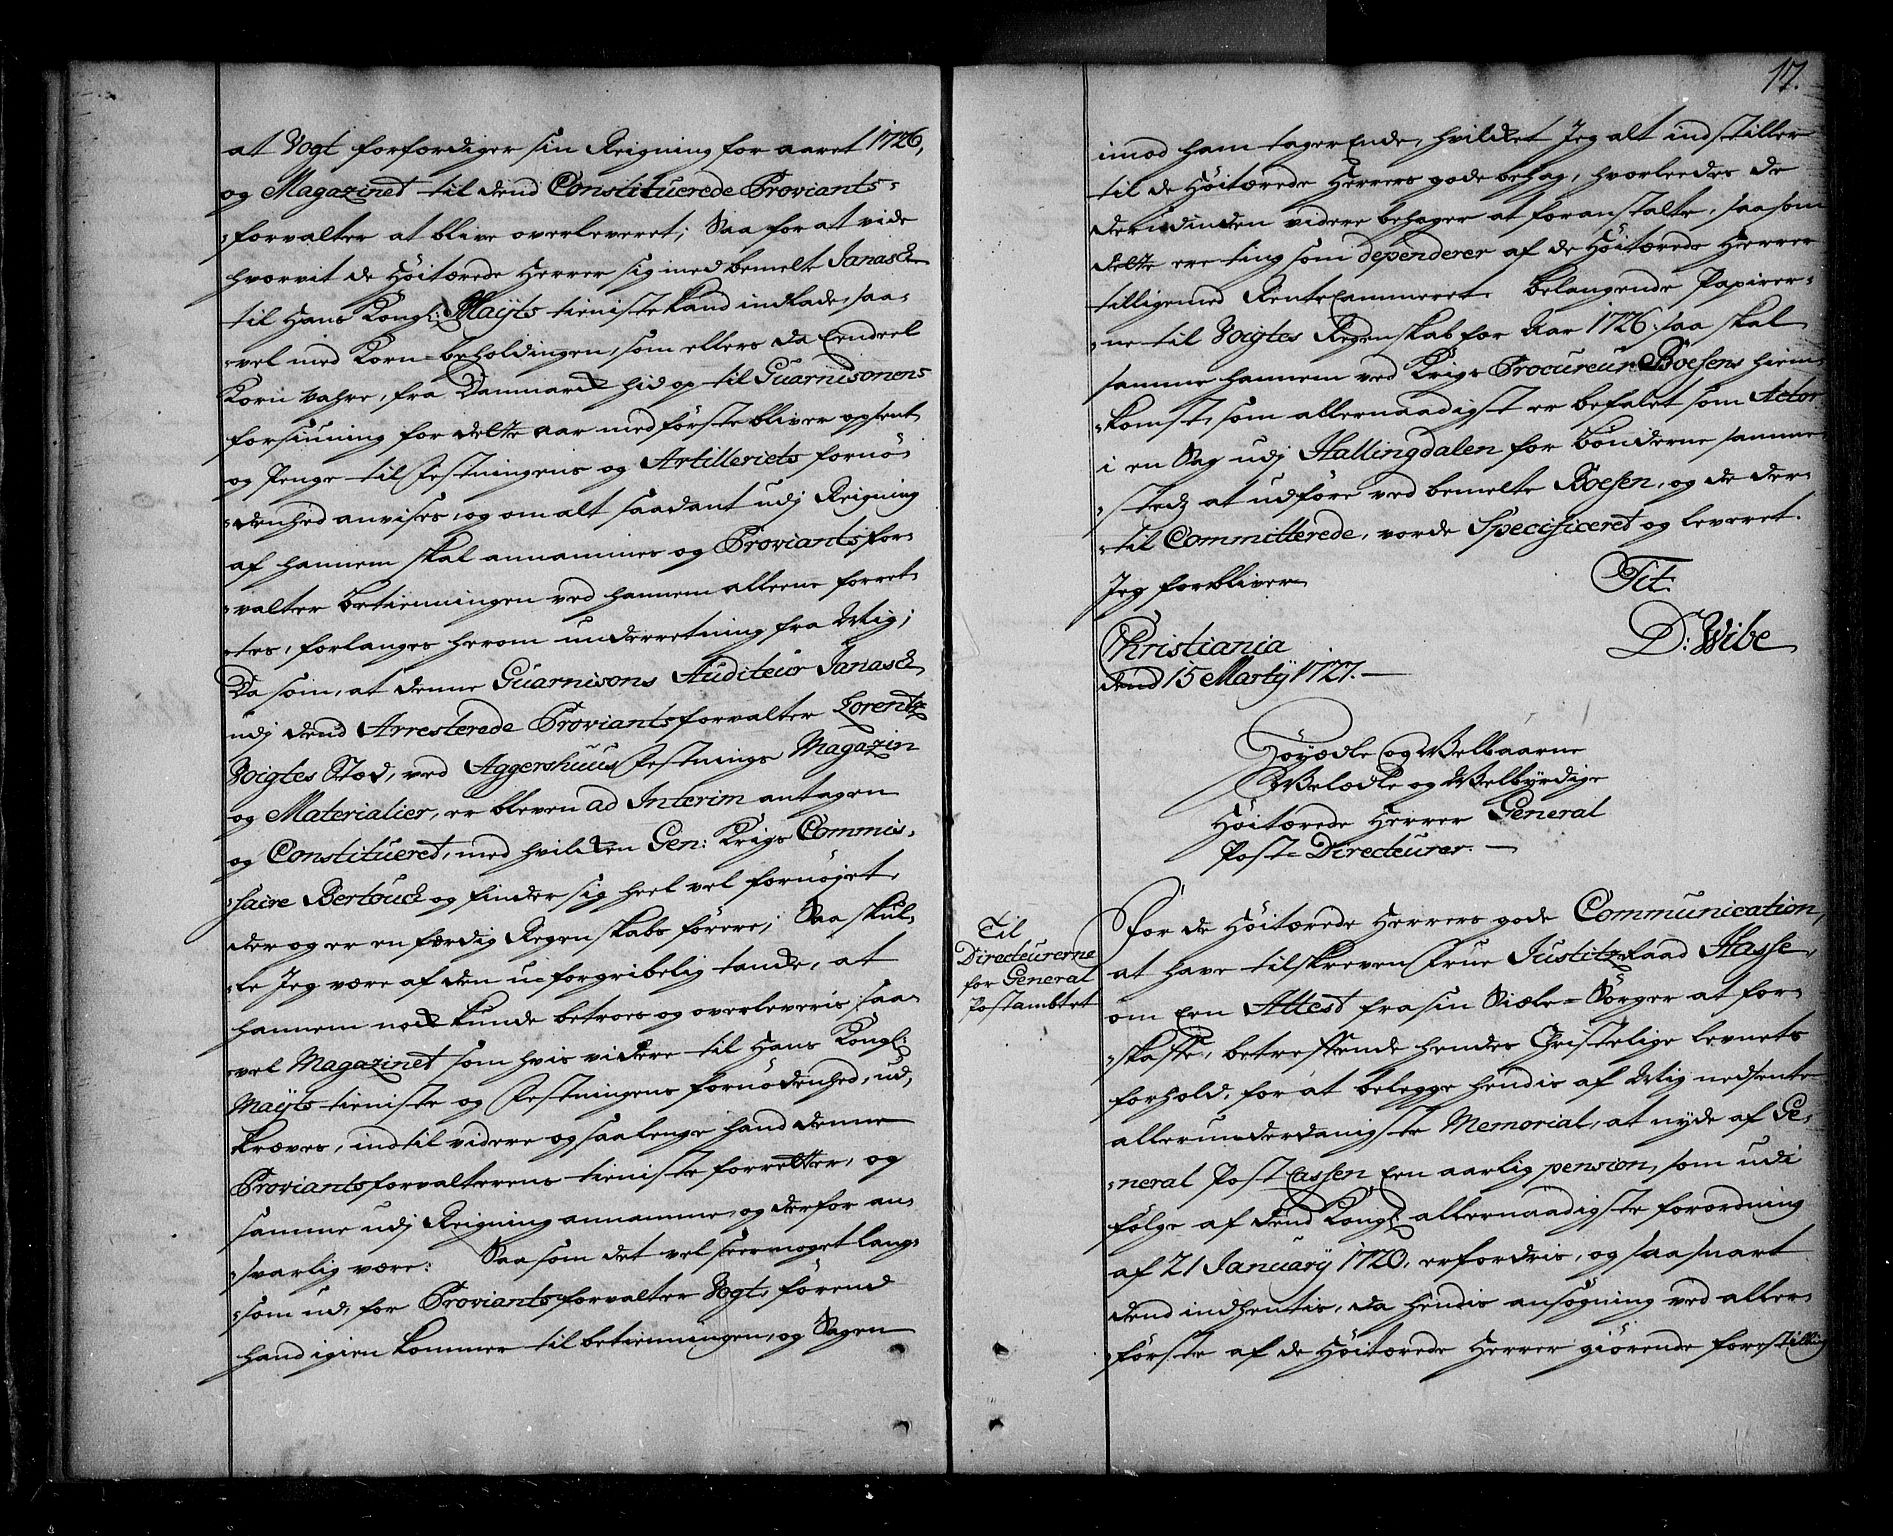 at Vogt forfærdiger sin Reigning for aaret 1726,
og Magazinet til dend Constituerede Proviants-
forvalter at blive overleveret; Saa for at vide
hvorvit de Høitærede Herrer sig med bemelte Janasch
til Hans Kongl: Mayts tieniste kand indlade, saa-
-vel med Korn-beholdingen, som ellers da Eendeel
Korn vahre, fra Danmarck hid op til Guarnisonens
forsiuning for dette aar med første bliver opsent
og Penge til Festningens og Artilleriets fornø-
-denhed anvises, og om alt saadant udj Reigning
af hannem skal annammes og Proviantsfor-
-valter betienningen ved hannem alleene forret-
-tes, forlanges herom underretning fra Mig;
Da som, at denne Guarnisons Auditeur Janasch
udj dend Arresterede Proviantsforvalter Lorentz
Voigtes Stæd, ved Aggershuus Festnings Magazin
og Materialier, er bleven ad Interim antagen
og Constitueret, med hvilcken Gen: Krigs Commis-
saire Bertouch og finder sig heel vel fornøjet,
der og er en færdig Regenskabs førere; Saa skul-
-le Jeg være af den u-forgribelig tancke, at
hannem nock kunde betroes og overleveris saa-
-vel Magazinet som hvis videre til Hans Kongl:
Mayts tieniste og Festningens fornødenhed, ud-
kræves, indtil videre og saalenge hand denne
Proviantsforvalterens tieniste forretter, og
samme udj Reigning annamme, og derfor an-
-svarlig være: Saasom det vel seer moget lang-
-som ud, for Proviantsforvalter Vogt, førend
hand igien kommer til betienningen, og Sagen
17.
imod ham tager Ende, hvilcket Jeg alt indstiller
til de Høitærede Herrers gode behag, hvorleedes de
derudinden videre behager at foranstalte, saasom
dette ere ting som dependerer af de Høitærede Herrer
tilligemed RenteCammeret. Belangende Papirer-
-ne til Voigtes Regenskab for Aar 1726: saa skal
samme hannem ved Krigs Procureur Boesens hiem-
-komst, som allernaadigst er befalet som Actor
i en Sag udj Hallingdalen for bønderne samme-
-stedz at udføre ved bemelte Boesen, og de der-
-til Committerede, vorde Specificeret og leveret.
Jeg forbliver
Tit:
D: Wibe
Christiania
dend 15 Martij 1727.
Høyædle og Welbaarne
Welædle og Welbyrdige
Høitærede Herrer General
Post-Directeurer.
Til
Directeurerne
for General
Postambtet
For de Høitærede Herrers gode Communication,
at have tilskreven Frue Justitz-Raad Hasse,
om Een Attest fra sin Siæle-Sørger at for-
-skaffe, betreffende hendes Christelige levnets
forhold, for at belegge hendis af Mig nedsente
allerunderdanigste Memorial, at nyde af Ge-
-neral Post Cassen Een aarlig pension, som udi
følge af dend Kongl: allernaadigste forordning
af 21 January 1720, erfordris, og saasnart
dend indhentis, da hendis ansøgning ved aller-
-første af de Høitærede Herrer giørende forestilling